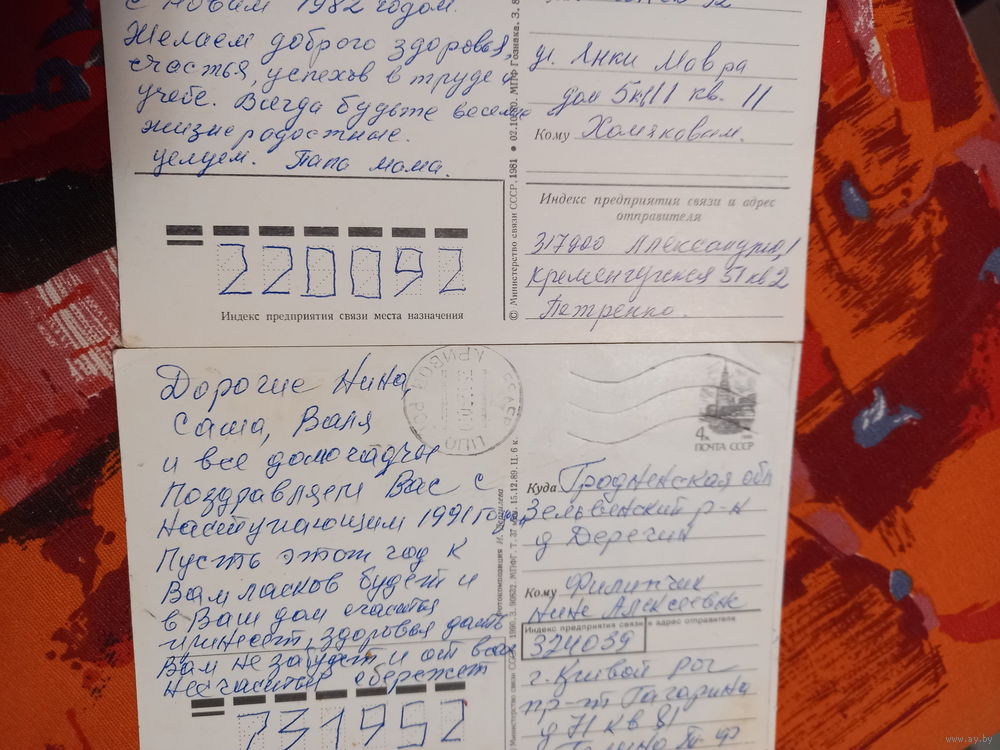 с Новым 1982 годом.
Желаем доброго здоровья,
счастья, успехов в труде и
учебе. Всегда будьте веселые
жизнерадостные.
целуем. Папа мама.
ул. Янки Мавра
дом 5 кв. 11
Кому Хомяковым.
Индекс предприятия связи и адрес
отправителя
317900 Александрия,
Кременчугская 51 кв 2
Петренко.
220092
Индекс предприятия связи места назначения
© Министерство связи СССР, 1981 ● 02.10.80. МПФ Гознака. З. 8
Дорогие Нина,
Саша, Валя
и все домочадцы
Поздравляем Вас с
наступающим 1991 годом
Пусть этот год к
Вам ласков будет и
в Ваш дом счастья
принесет, здоровья дать
Вам не забудет и от всех
несчастьр сбережет
КРИВОЙ РОГ
4к
ПОЧТА СССР
Куда Гродненская обл
Зельвенский р-н
д Деречин
Кому Филипчик
Нине Алексеевне
Индекс предприятия связи и адрес отправителя
324039
г. Кривой рог
пр-т Гагарина
д 71 кв 81
731952
Министерство связи СССР 1990. З. 90622. МПФГ. Т. 37 15.12.89. 11. 6 к.
www.ay.by